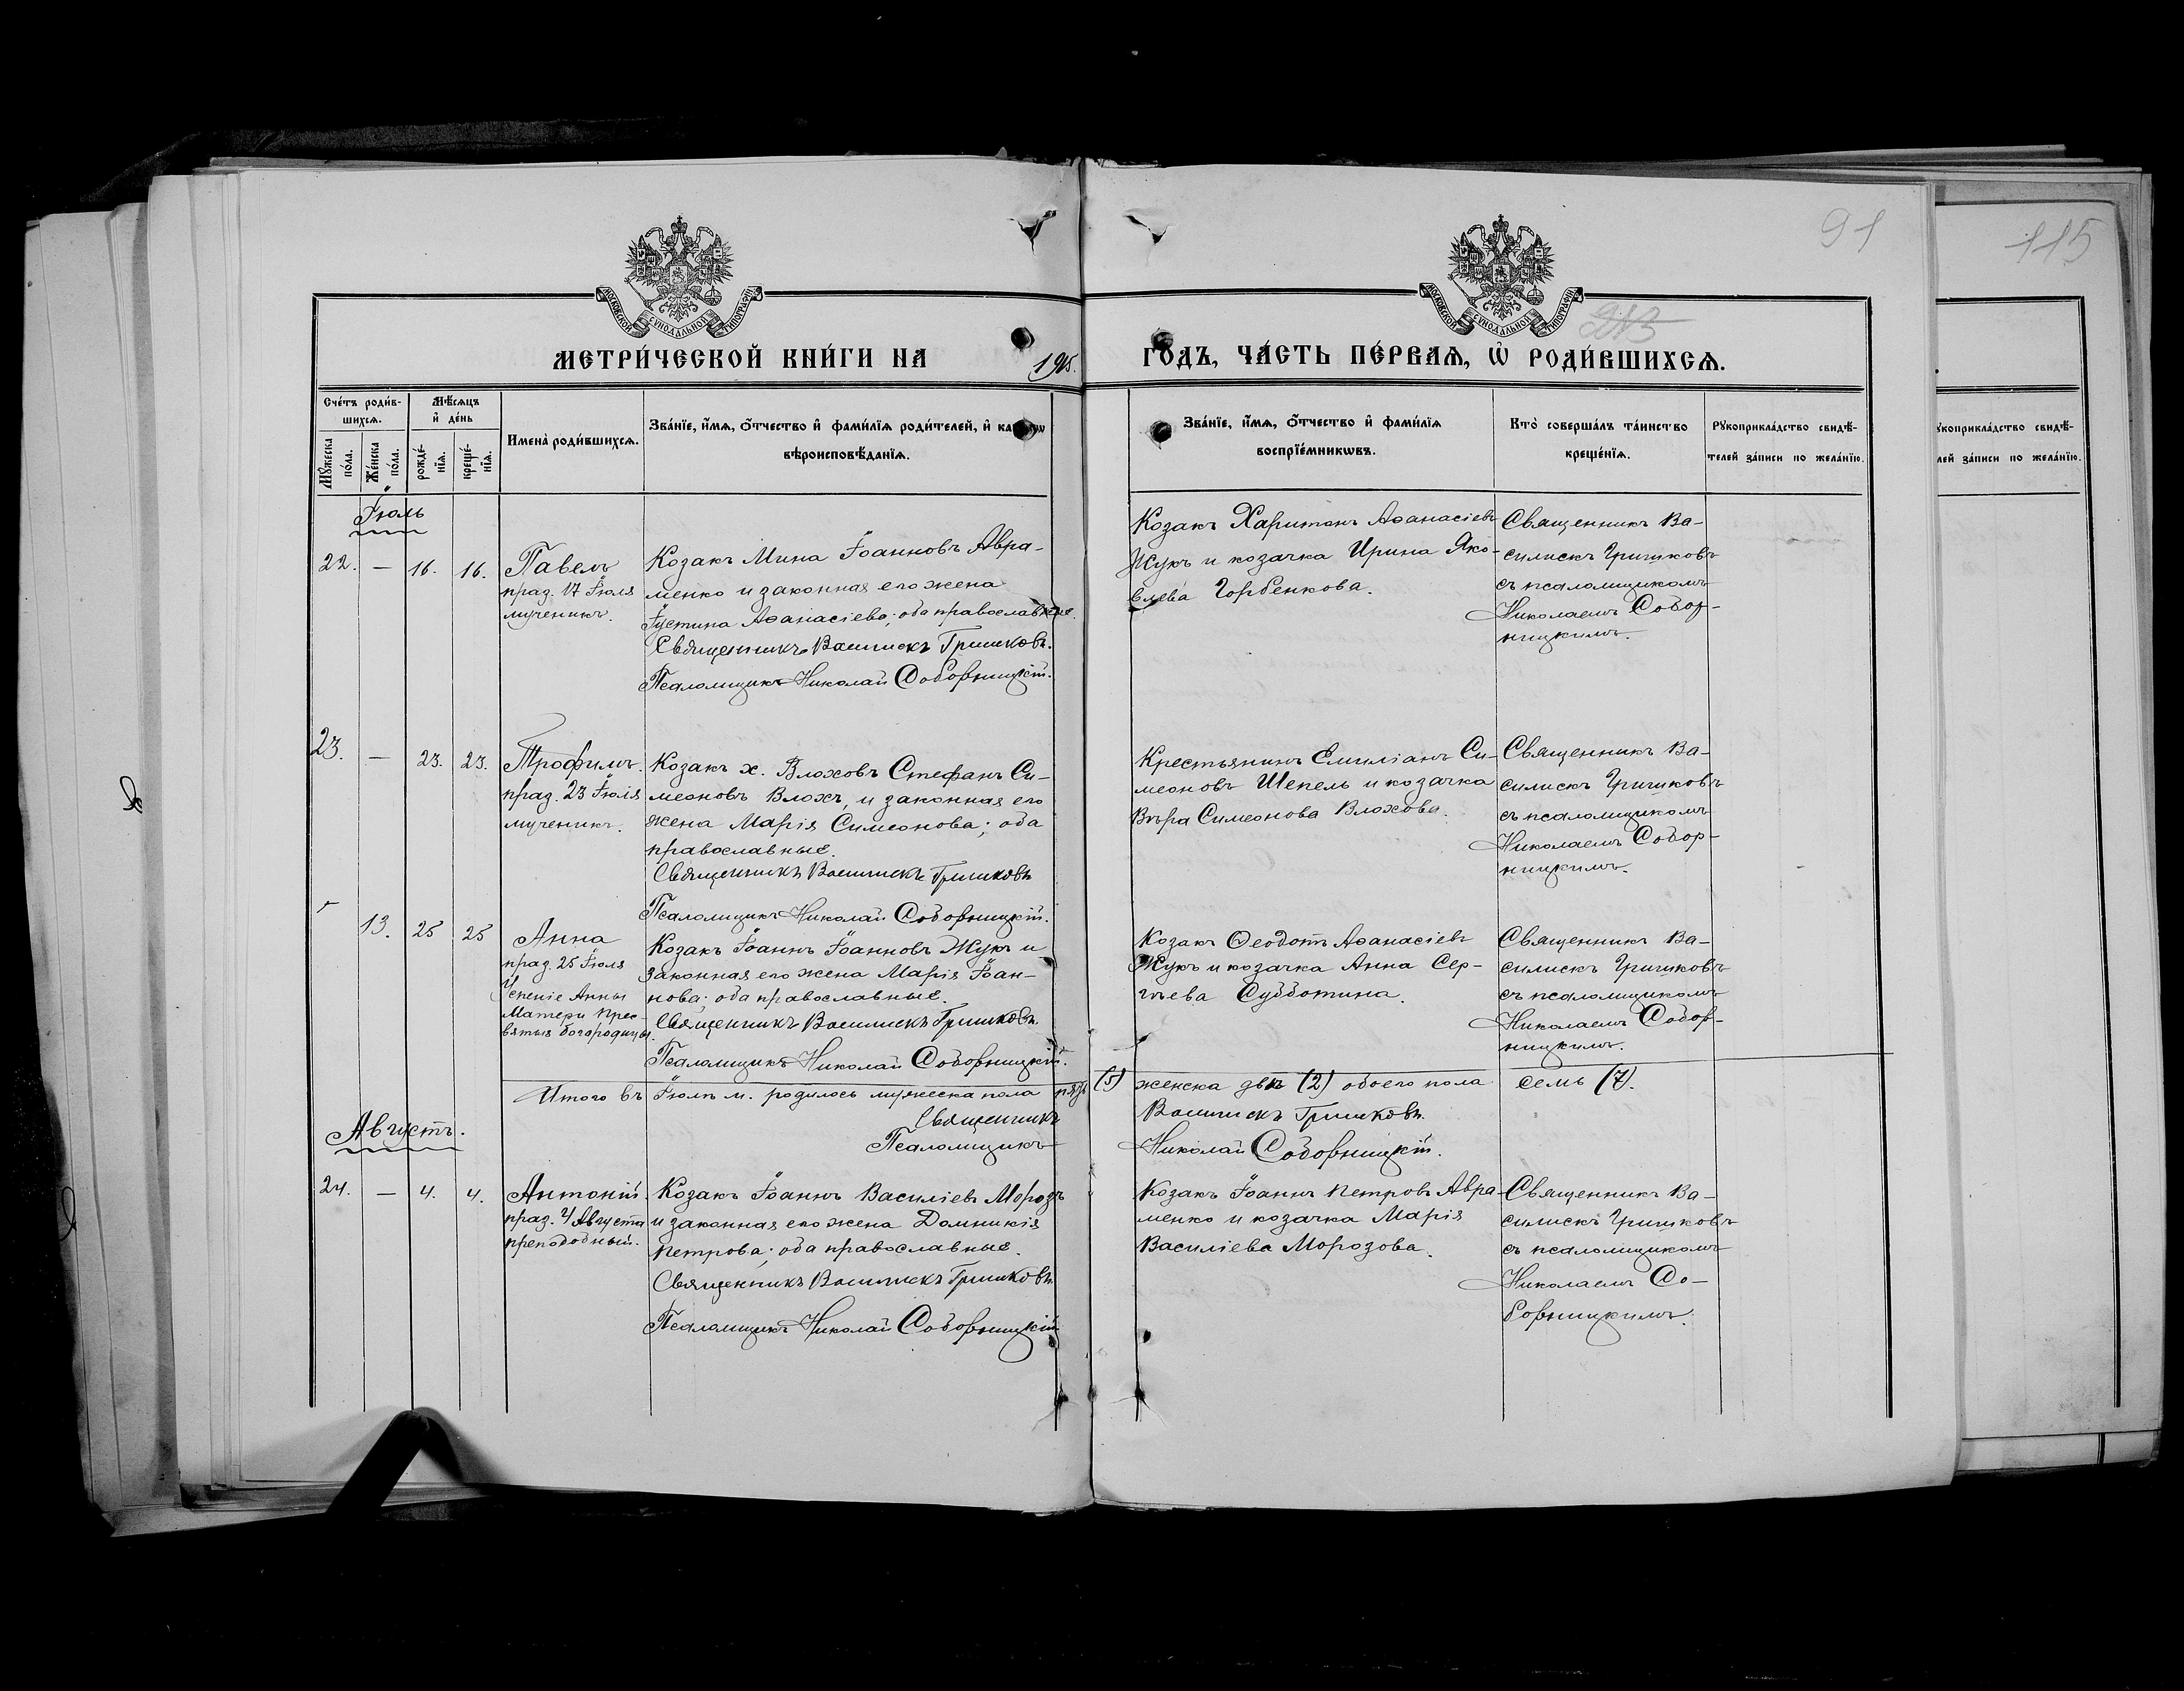 91
115
МОСКОВСКОЙ СУНОДАЛЬНОЙ ТИПОГРАФІИ
МОСКОВСКОЙ СУНОДАЛЬНОЙ ТИПОГРАФІИ
МЕТРИ́ЧЕСКОЙ КНИ́ГИ НА 1915. ГО́ДЪ, ЧА́СТЬ ПЕ́РВАѦ, Ѡ҆ РОДИ́ВШИХСѦ.
Сче́тъ роди́в-
шихсѧ.
Мѣ́сѧцъ
и҆ де́нь
Мꙋ́жеска
по́ла.
Же́нска
по́ла.
рожде́-
нїѧ.
креще́-
нїѧ.
Имена̀ роди́вшихсѧ.
Зва́нїе, и҆́мѧ, ѻ҆́тчество и҆ фами́лїѧ роди́телей, и҆
вѣроисповѣ́данїѧ.
Зва́нїе, и҆́мѧ, ѻ҆́тчество и҆ фами́лїѧ
воспрїе́мникѡвъ.
Кто̀ соверша́лъ та́инство
креще́нїѧ.
Рꙋкоприкла́дство свидѣ́-
телей за́писи по жела́нїю.
ꙋкоприкла́дство свидѣ́-
лей за́писи по жела́нїю.
Іюль
22. — 16. 16.
Павелъ
праз. 17 Іюля
мученикъ.
Козакъ Мина Іоанновъ Авра-
менко и законная его жена
Іустина Аѳанасіева; оба православные.
Священникъ Василискъ Гришковъ.
Псаломщикъ Николай Соборницкій.
Козакъ Харитонъ Аѳанасіевъ
Жукъ и козачка Ирина Яко-
влева Горбенкова.
Священникъ Ва-
силискъ Гришковъ
съ псаломщикомъ
Николаемъ Собор-
ницкимъ.
23. — 23. 23.
Трофимъ.
праз. 23 Іюля
мученикъ.
Козакъ х. Влоховъ Стефанъ Си-
меоновъ Влохъ, и законная его
жена Марія Симеонова; оба
православные.
Священникъ Василискъ Гришковъ
Псаломщикъ Николай Соборницкій.
Крестьянинъ Емиліанъ Си-
меоновъ Шепель и козачка
Вѣра Симеонова Влохова.
Священникъ Ва-
силискъ Гришковъ
съ псаломщикомъ
Николаемъ Собор-
ницкимъ.
13. 25 25
Анна
праз. 25 Іюля
Успеніе Анны
Матери Прес-
вятыя Богородицы.
Козакъ Іоаннъ Іоанновъ Жукъ и
законная его жена Марія Іоан-
нова; оба православные.
Священникъ Василискъ Гришковъ.
Псаломщикъ Николай Соборницкій.
Козакъ Ѳеодотъ Аѳанасіевъ
Жукъ и козачка Анна Сер-
гѣева Субботина.
Священникъ Ва-
силискъ Гришковъ
съ псаломщикомъ
Николаемъ Собор-
ницкимъ.
Итого въ Іюлѣ м. родилось мужеска пола пять (5) женска двѣ (2) обоего пола семь (7).
Священникъ Василискъ Гришковъ.
Псаломщикъ Николай Соборницкій.
Августъ.
24. — 4. 4.
Антоній.
праз. 4 Августа
преподобный.
Козакъ Іоаннъ Василіевъ Морозъ
и законная его жена Домникія
Петрова; оба православные.
Священникъ Василискъ Гришковъ.
Псаломщикъ Николай Соборницкій
Козакъ Іоаннъ Петровъ Авра-
менко и козачка Марія
Василіева Морозова.
Священникъ Ва-
силискъ Гришковъ
съ псаломщикомъ
Николаемъ Со-
борницкимъ.